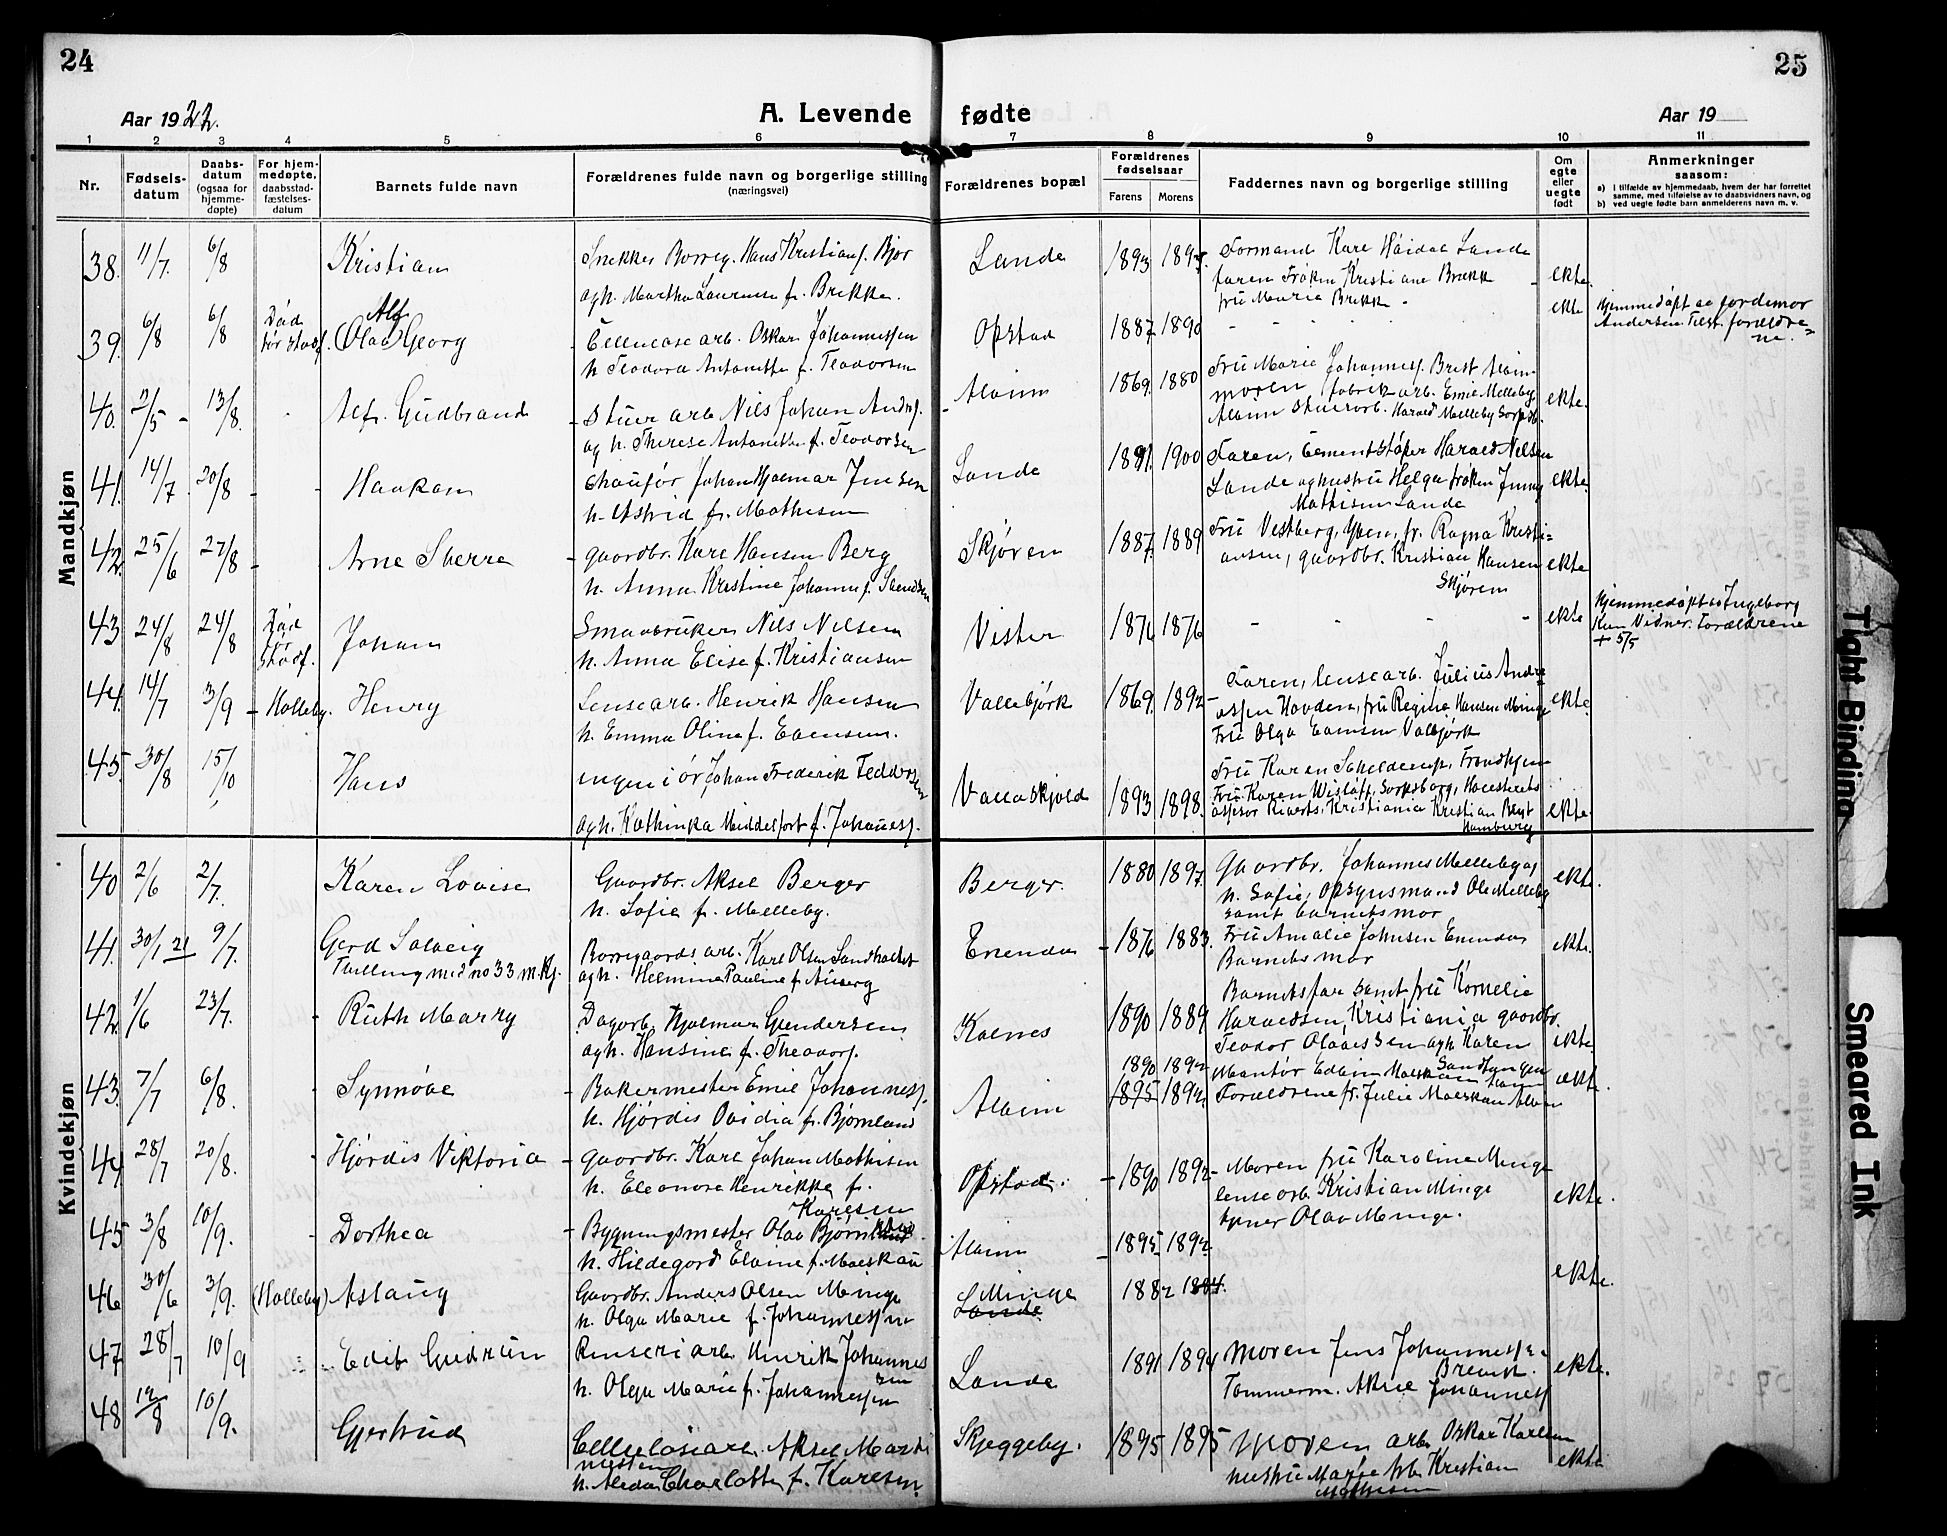 24
25
Aar 1922.
A. Levende fødte
Aar 19
1 2 3 4 5 6 7 8 9 10 11
Nr.
Fødsels-
datum
Daabs-
datum
(ogsaa for
hjemme-
døpte)
For hjem-
medøpte,
daabsstad-
fæstelses-
datum
Barnets fulde navn
Forældrenes fulde navn og borgerlige stilling
(næringsvei)
Forældrenes bopæl
Forældrenes
fødselsaar
Farens Morens
Faddernes navn og borgerlige stilling
Om
egte
eller
uegte
født
Anmerkninger
saasom:
a) i tilfælde av hjemmedaab, hvem der har forrettet
samme, med tilføielse av to daabsvidners navn, og
b) ved uegte fødte barn anmelderens navn m. v.
Mandkjøn
38. 11/7. 6/8 Kristian
Snekker Borreg. Hans Kristians. Bjor
og h. Martha Laurense f. Brekke.
Lande 1893
Formand Karl Høidal Lande
faren Frøken Kristiane Brekk
fru Maria Brekk
ekte.
39. 6/8 6/8 Død før stadf. Olav Alf Georg
Cellulosearb. Oskar Johannessen
h. Teodora Antonette f. Teodorsen
Opstad 1887. 1890
ekte
Hjemmedøpt av jordemor
Andersen. Tilst. foreldre-
ne.
40. 2/5 - 13/8. Alf. Gudbrand
Stuer arb Nils Johan Andrs.
og h. Therese Antonette f. Teodorsen
Alvim 1869. 1880
Fru Marie Johanness. Brest Alvim
moren fabrik arb. Emil Melleby
Alvim Stuerarb. Harald Melleby Sarpsb.
ekte.
41. 14/7 20/8 - Haakon
Chauför Johan Hjalmar Jensen
h. Astrid f. Mathisen
Lande 1891. 1900
Faren, Cementstøper Harald Nilsen
Lande og hustru Helga frøken Jenny
Mathisen Lande
ekte.
42. 25/6 27/8 - Arne Sverre
- gaardbr. Karl Hansen Berg
h. Anna Kristine Johanne f. Svendsen
Skjøren 1887. 1889
Fru Vestberg, Yven, fr. Ragna Kristi-
ansen, gaardbr. Kristian Hansen
Skjøren
ekte
43 24/8 24/8 Død før stadf. Johan
Smaabruker Nils Nilsen
h. Anna Elise f. Kristiansen
Vister 1876 1876
ekte
Hjemmedøpt av Ingeborg
44. 14/7 3/9 - Holleby. Henry
Lensearb. Henrik Hansen
h. Emma Oline f. Evensen.
Vallebjørk 1869. 1892
- Faren, lensearb. Julius Andre
assen Hovden, fru Regine Hansen Minge
Fru Olga Evensen Valbjørk
ekte.
45. 30/8 15/10 Hans
ingeniør Johan Frederik Feddersen
og h. Kathinka Middelfart f. Johaness.
Vallaskjold 1893 1898.
Fru Karen Schelderup, Trondhjem
Fru Karen Wisløff, Sarpsborg, Høiesterets
asessor Kristiania Kristian
Hamburg
ekte.
Kvindekjøn
40 2/6 2/7. Karen Lovise
Gaardbr. Aksel Berger
h. Sofie f. Melleby.
Berger. 1880 1897.
Gaardbr. Johannes Melleby og
h. Sofie, opsynsmand Ole Melleby
samt barnets mor
ekte.
41. 30/1 21 9/7. Gerd Solveig
Tvilling med no 33 m.Kj.
Borregaards arb. Karl Olsen Sandholtet
og h. Helmine Pauline f. Auberg
Enendan - 1876 1883.
Fru Amalie Johnsen Enendan
Barnets mor
ekte.
42. 1/6 23/7. - Ruth Marry
Dagarb. Hjalmar Gundersen
og h. Hansine f. Theodors.
Kalnes 1890 1889
Barnets far samt fru Kornelie
Haraldsen, Kristiania gaardbr.
Teodor Olavessen og h. Karen
ekte.
43. 7/7 6/8. - Synnøve
- Bakermester Emil Johanness.
h. Hjørdis Ovidia f. Bjørnland
Alvim 1890 1892
1895 1892.
Forældrene fr. Julie Malskau Alvim
ekte.
44 28/7 20/8. - Hjørdis Viktoria
- gaardbr. Karl Johan Mathisen
h. Eleonore Henrikke f.
Karlsen
Opstad. - 1890 1892 -
Moren fru Karoline Minge
lensearb. Kristian Minge
Olav Minge.
ekte.
45 3/8 10/9. - Dorthea
- Bygningsmester Olav Bjørnland
h. Hildegard Elvine f. Malskau
Alvim - 1895 1892.
ekte.
46 30/6 3/9. (Holleby) Aslaug
Gaardbr. Anders Olsen Minge
h. Olga Marie f. Johannessen
Minge
Lande
1882 1884.
47 28/7 10/9 Edit Gudrun
Renseriarb Henrik Johannes
sen
h. Olga Marie f. Johannessen
Lande 1891 1894
Moren Jens Johannesse-
Brevik.
Tømmerm. Aksel Johanness
ekte.
48 12/8 10/9. Gjertrud
Cellulosiarb. Aksel Marti
nussen
h. Alvda Charlotte f. Karlsen.
Skjeggeby. 1895 1895
Moren arb Oskar Karlsen
hustru Marie frb Kristian
Mathisen
ekte
Tight Binding
Smeared Ink